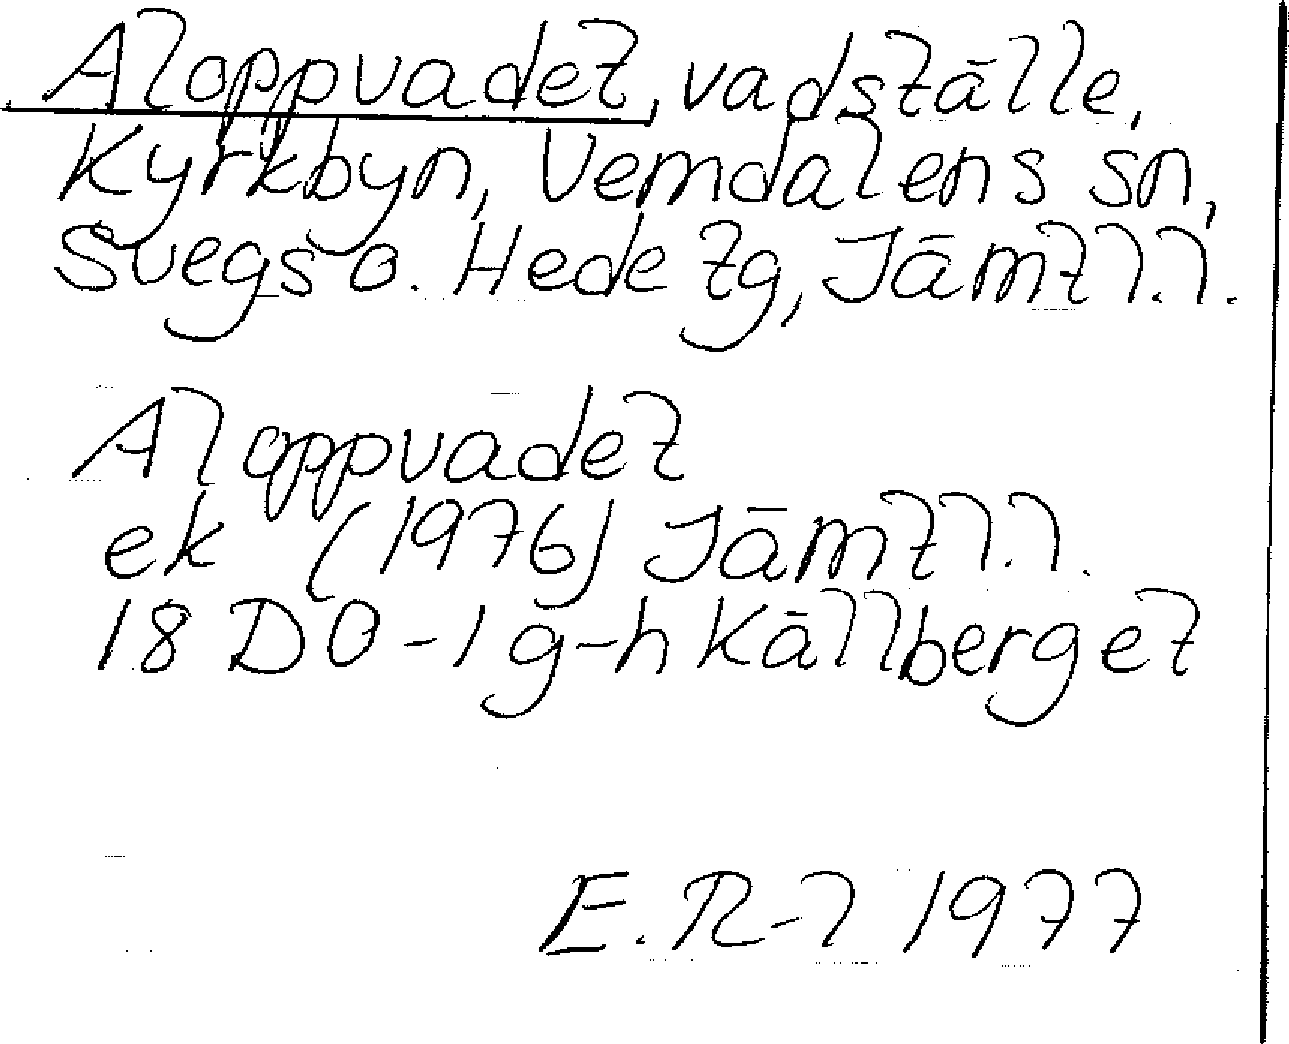 Aloppvadet, vadställe,
Kyrkbyn, Vemdalens sn,
Svegs o. Hede tg, Jämtl.l.
Aloppvadet
ek (1976) Jämtl.l.
18 D 0-1 g-h Källberget
E. R-l 1977